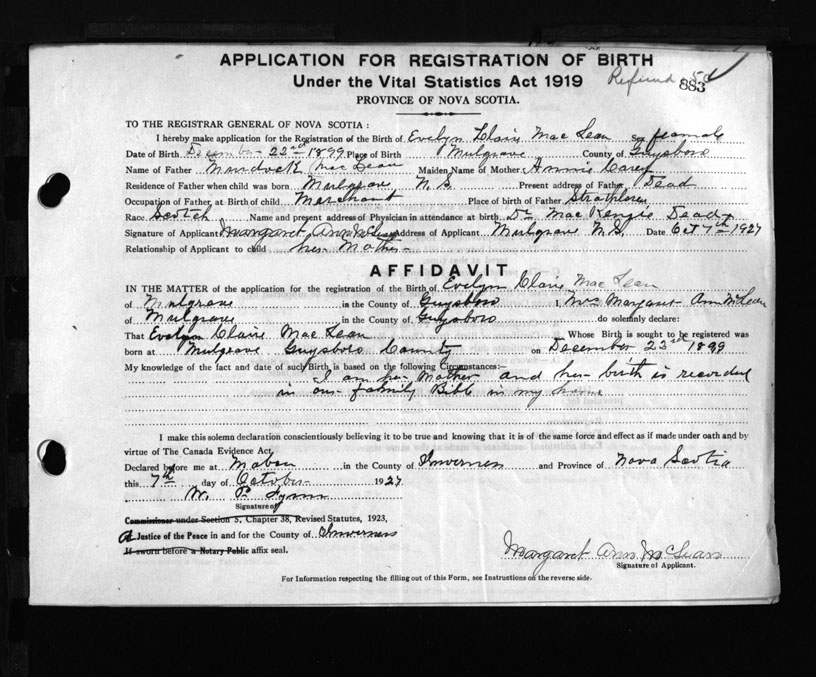 APPLICATION FOR REGISTRATION OF BIRTH
Under the Vital Statistics Act 1919 Refund
883
PROVINCE OF NOVA SCOTIA.
TO THE REGISTRAR GENERAL OF NOVA SCOTIA:
I hereby make application for the Registration of the Birth of Evelyn Claire MacLean Sex female
Date of Birth December 22nd 1899 Place of Birth Mulgrave County of Guysboro
Name of Father Murdock MacLean Maiden Name of Mother Annie Carey
Residence of Father when child was born Mulgrave N.S. Present address of Father Dead
Occupation of Father at Birth of child Merchant Place of birth of Father Strathlorne
Race Scotch Name and present address of Physician in attendance at birth Dr MacKenzie Dead
Signature of Applicant Margaret Ann McLean Address of Applicant Mulgrave N.S. Date Oct 7th 1927
Relationship of Applicant to child her Mother
AFFIDAVIT
IN THE MATTER of the application for the registration of the Birth of Evelyn Claire MacLean
of Mulgrave in the County of Guysboro I, Mrs Margaret Ann McLean
of Mulgrave in the County of Guysboro do solemnly declare:
That Evelyn Claire MacLean Whose Birth is sought to be registered was
born at Mulgrave Guysboro County on December 23rd 1899
My knowledge of the fact and date of such Birth, is based on the following Circumstances:—
I am her Mother and her birth is recorded
in our family Bible in my home
I make this solemn declaration conscientiously believing it to be true and knowing that it is of the same force and effect as if made under oath and by
virtue of The Canada Evidence Act,
Declared before me at Mabou in the County of Inverness and Province of Nova Scotia
this 7th day of October 1927
W. P.
Signature of
Commissioner under Section 5, Chapter 38, Revised Statutes, 1923,
A Justice of the Peace in and for the County of Inverness
If sworn before a Notary Public affix seal.
Margaret Ann McLean
Signature of Applicant.
For Information respecting the filling out of this Form, see Instructions on the reverse side.